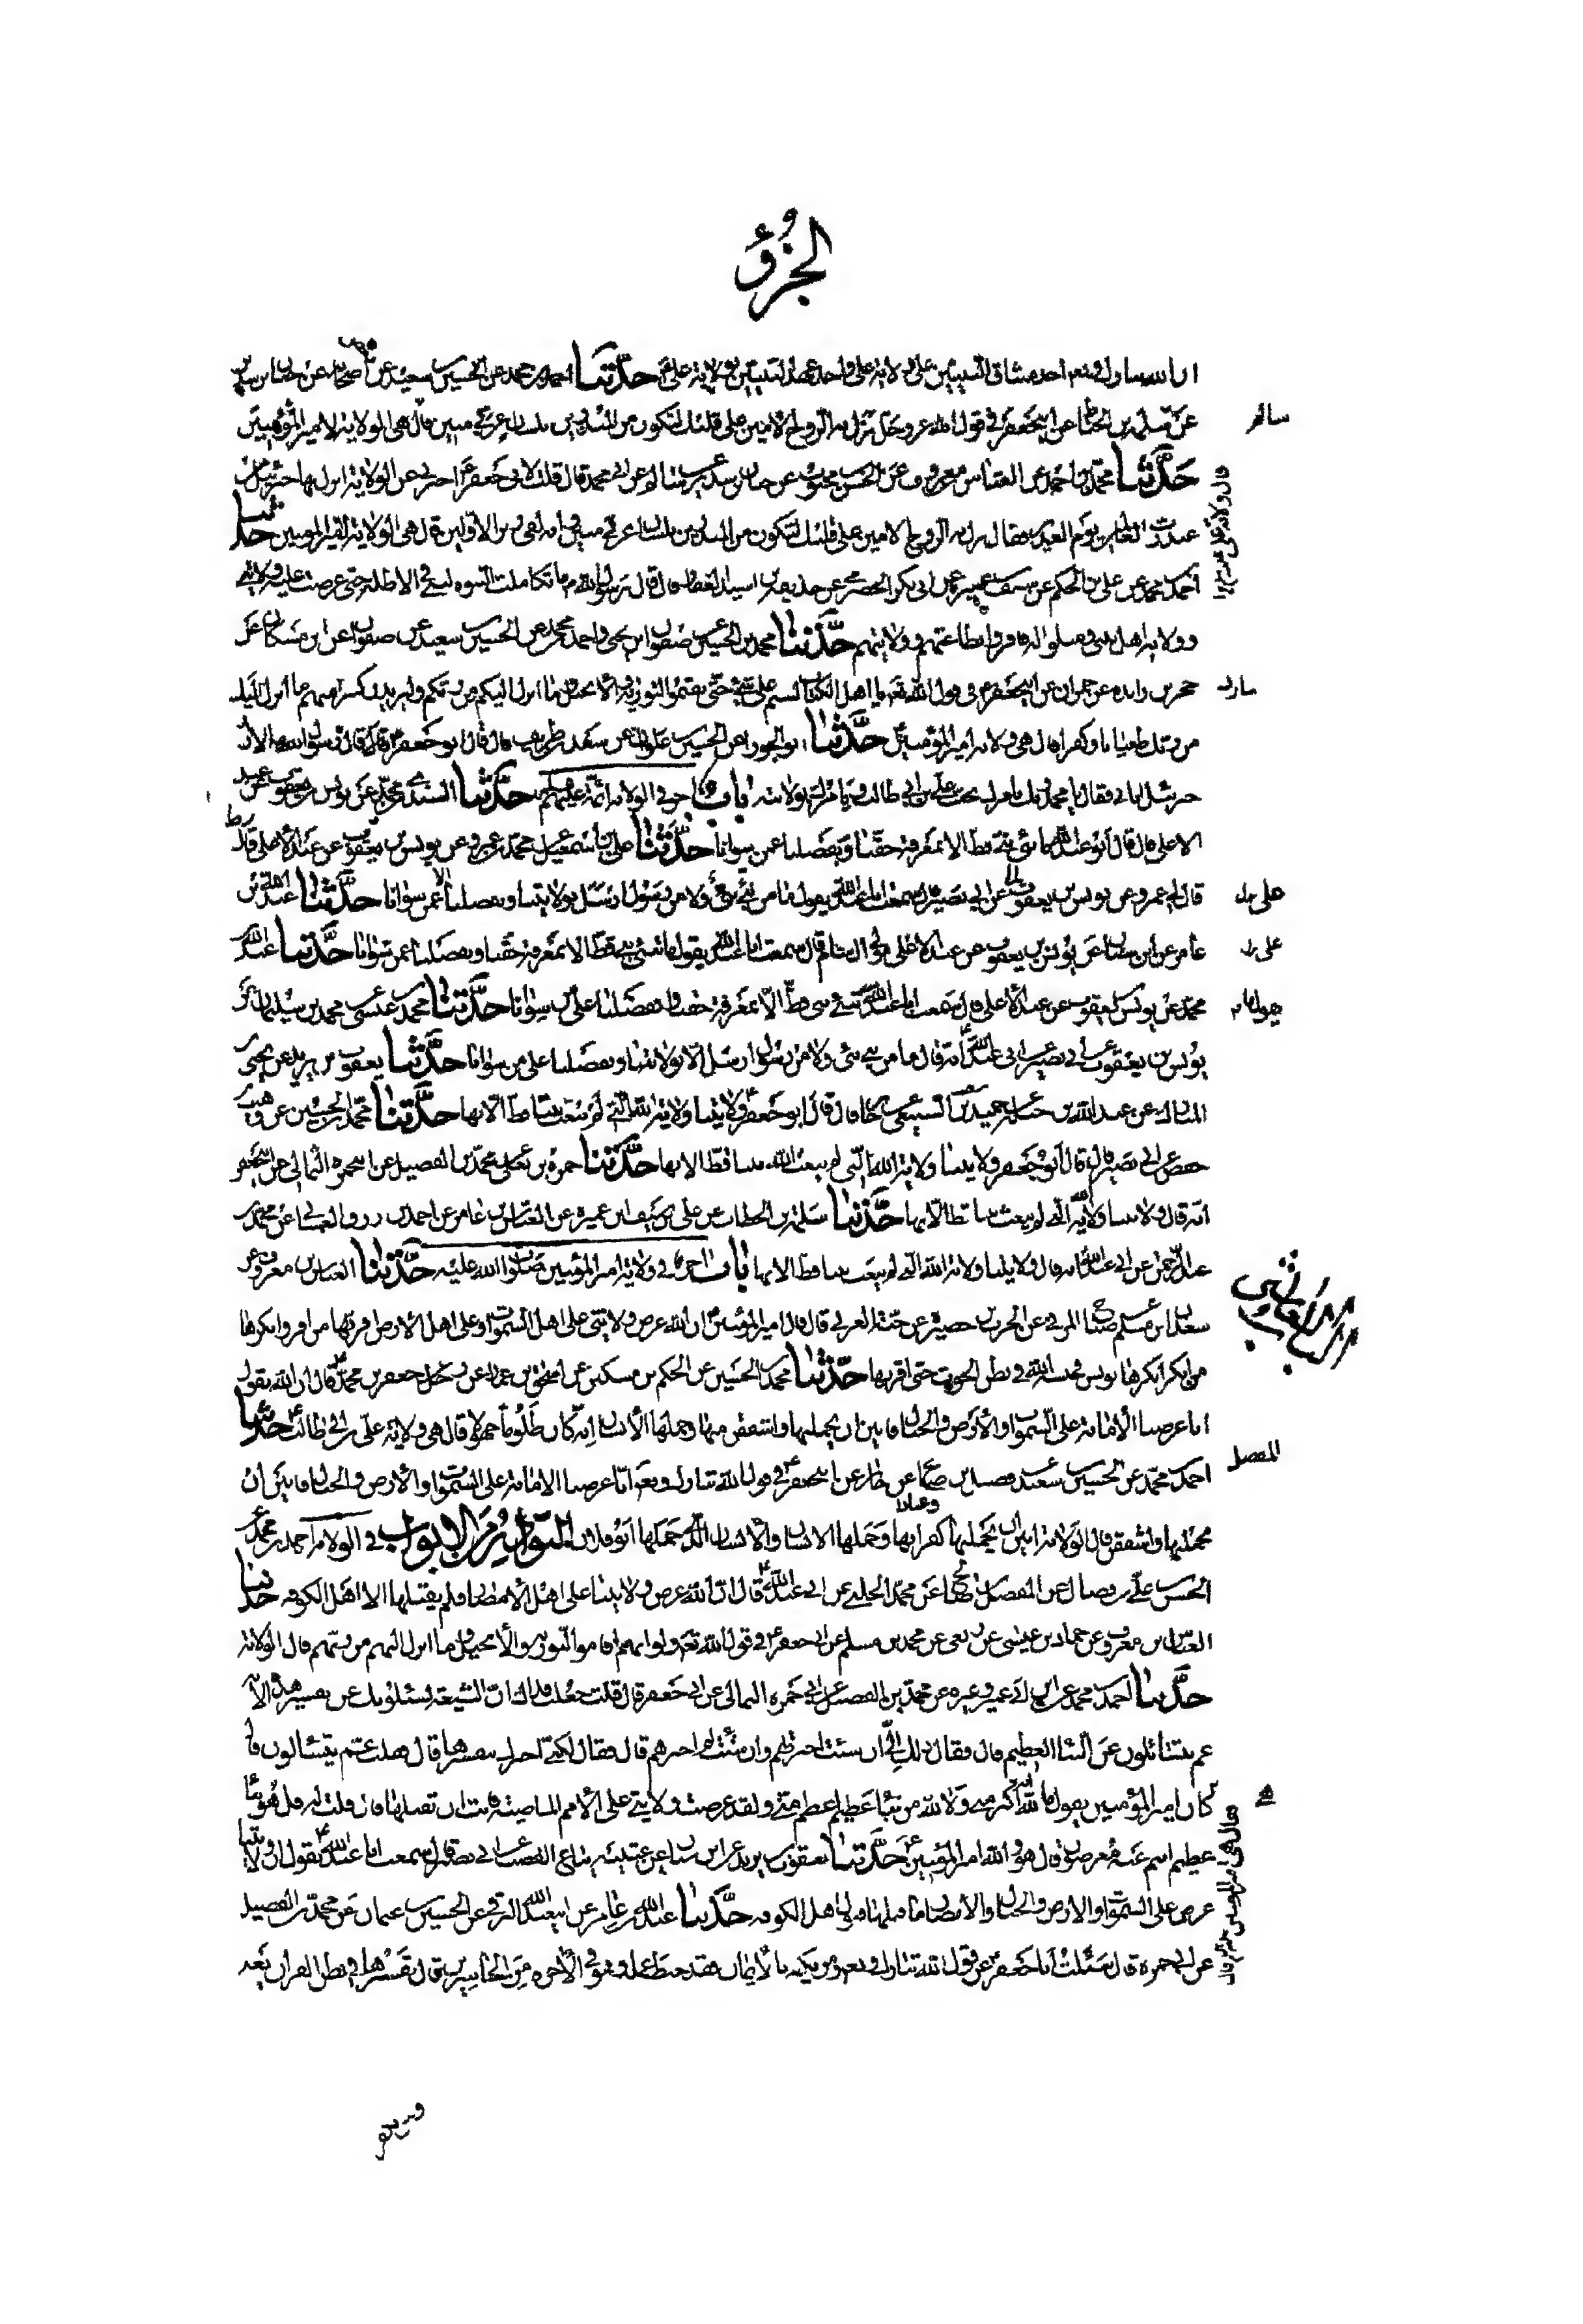 الجزؤ
ان الله تبارك وتعالى اخذ ميثاق النبيين على ولاية على واخذ عهد النبيين بولاية على حدثنا احمد بن محمد عن الحسين بن سعيد عن بعض اصحابه عن حنان بن سدير
عن سلمة بن الحناط عن ابى جعفر فى قول الله عز وجل نزل به الروح الامين على قلبك لتكون من المنذرين بلسان عربى مبين قال هى الولاية لامير المؤمنين
حدثنا محمد بن احمد عن العباس بن معروف عن الحسن بن محبوب عن حنان بن سدير عن سالم عن ابى محمد قال قلت لابى جعفر اخبرنى عن الولاية انزل بها جبرئيل من
عند رب العالمين يوم الغدير فقال نزل به الروح الامين على قلبك لتكون من المنذرين بلسان عربى مبين وانه لفى زبر الاولين قال هى الولاية لامير المؤمنين حدثنا
احمد بن محمد عن على بن الحكم عن سيف بن عميرة عن ابى بكر الحضرمى عن حذيفة بن اسيد الغفارى قال قال رسول الله ما تكاملت النبوة لنبى فى الاظلة حتى عرضت عليه ولايتى
وولاية اهل بيتى ومثلوا له فاقروا بطاعتهم وولايتهم حدثنا محمد بن الحسين عن صفوان بن يحيى واحمد بن محمد عن الحسين بن سعيد عن صفوان عن ابن مسكان عن
حجر بن زائدة عن حمران عن ابى جعفر فى قول الله تعالى يا اهل الكتاب لستم على شىء حتى تقيموا التورية والانجيل وما انزل اليكم من ربكم وليزيدن كثيرا منهم ما انزل اليك
من ربك طغيانا وكفرا قال هى ولاية امير المؤمنين حدثنا ابو الجوزا عن الحسين بن علوان عن سعد بن طريف قال قال ابو جعفر قال قال رسول الله
جبرئيل اتانى فقال يا محمد ربك يامرك بحب على بن ابى طالب ويامرك بولايته باب اخر فى الولاية الائمة عليهم حدثنا السندى بن محمد عن يونس بن يعقوب عن عبد
الاعلى قال قال ابو عبد الله ما نبئ نبى قط الا بمعرفة حقنا وبفضلنا عمن سوانا حدثنا على بن اسمعيل عن محمد بن عمرو عن يونس بن يعقوب عن عبد الاعلى قال
قال لى عمرو عن يونس بن يعقوب عن ابى بصير قال سمعت ابا عبد الله يقول ما من نبى نبئ ولا من رسول ارسل الا بولايتنا وبفضلنا عمن سوانا حدثنا عبد الله بن
عامر عن ابن سنان عن يونس بن يعقوب عن عبد الاعلى مولى ال سام قال سمعت ابا عبد الله يقول ما تنبى نبى قط الا بمعرفة حقنا وبفضلنا عمن سوانا حدثنا عبد الله بن
محمد عن يونس بن يعقوب عن عبد الاعلى قال سمعت ابا عبد الله نبى قط الا بمعرفة حقنا وبفضلنا على من سوانا حدثنا محمد بن عيسى عن محمد بن سليمان عن
يونس بن يعقوب عن ابى بصير عن ابى عبد الله انه قال ما من نبى نبئ ولا من رسول ارسل الا بولايتنا وبفضلنا على من سوانا حدثنا يعقوب بن يزيد عن يحيى بن
المبارك عن عبد الله بن جبلة عن حميد بن شعيب السبيعى عن جابر قال قال ابو جعفر ولايتنا ولاية الله التى لم يبعث نبيا قط الا بها حدثنا محمد بن الحسين عن وهيب بن
حفص عن ابى بصير قال قال ابو جعفر ولايتنا ولاية الله التى لم يبعث الله نبيا قط الا بها حدثنا حمزة بن يعلى عن محمد بن الفضيل عن ابى حمزة الثمالى عن ابى جعفر
انه قال ولايتنا ولاية الله التى لم يبعث نبيا قط الا بها حدثنا سلمة بن الخطاب عن على بن سيف بن عميرة عن العباس بن عامر عن احمد بن رزق الغمشانى عن محمد بن
عبد الرحمن عن ابى عبد الله انه قال ولايتنا ولاية الله التى لم يبعث نبيا قط الا بها باب اخر فى ولاية امير المؤمنين صلوات الله عليه حدثنا العباس بن معروف عن
سعدان بن مسلم عن صباح المزنى عن الحرث بن حصيرة عن حبة العرنى قال قال امير المؤمنين ان الله عرض ولايتى على اهل السموات وعلى اهل الارض اقر بها من اقر وانكرها
من انكر انكرها يونس فحبسه الله فى بطن الحوت حتى اقر بها حدثنا محمد بن الحسين عن الحكم بن مسكين عن اسحق بن عمار عن رجل عن جعفر بن محمد قال ان الله يقول
انا عرضنا الامانة على السموات والارض والجبال فابين ان يحملنها واشفقن منها وحملها الانسان انه كان ظلوما جهولا قال هى ولاية على بن ابى طالب حدثنا
احمد بن محمد عن الحسين بن سعيد عن مفضل بن صالح عن جابر عن ابى جعفر فى قول الله تبارك وتعالى انا عرضنا الامانة على السموات والارض والجبال فابين ان
يحملنها واشفقن قال الولاية ابين ان يحملنها كفرا بها وحملها الانسان والانسان الذى حملها ابو فلان النوادر من الابواب فى الولاية احمد بن محمد عن
الحسن بن على بن فضال عن المفضل بن صالح عن محمد الحلبى عن ابى عبد الله قال ان الله عرض ولايتنا على اهل الامصار فلم يقبلها الا اهل الكوفه حدثنا
العباس بن معروف عن حماد بن عيسى عن ربعى عن محمد بن مسلم عن ابى جعفر فى قول الله تعالى ولو انهم اقاموا التورية والانجيل وما انزل اليهم من ربهم قال الولاية
حدثنا احمد بن محمد عن ابن ابى عمير وغيره عن محمد بن الفضيل عن ابى حمزة الثمالى عن ابى جعفر قال قلت جعلت فداك ان الشيعة يسئلونك عن تفسير هذه الاية
عم يتسائلون عن النبا العظيم قال فقال ذلك الى ان شئت اخبرتهم وان شئت لم اخبرهم قال فقال لكنى اخبرك بتفسيرها قال فقلت عم يتسائلون قال
كان امير المؤمنين يقول ما لله اية اكبر منى ولا لله من نبا عظيم اعظم منى ولقد عرضت ولايتى على الامم الماضية فابت ان تقبلها قال قلت له قل هو نبأ
عظيم انتم عنه معرضون قال هو والله امير المؤمنين حدثنا يعقوب بن يزيد عن ابن سنان عن عتيبة بياع القصب عن ابى بصير قال سمعت ابا عبد الله يقول ان ولايتنا
عرض على السموات والارض والجبال والامصار ما قبلها قبول اهل الكوفه حدثنا عبد الله بن عامر عن ابى عبد الله البرقى عن الحسين بن عثمان عن محمد بن الفضيل
عن ابى حمزه قال سئلت ابا جعفر عن قول الله تبارك وتعالى ومن يكفر بالايمان فقد حبط عمله وهو فى الاخرة من الخاسرين قال تفسيرها فى بطن القران يعنى